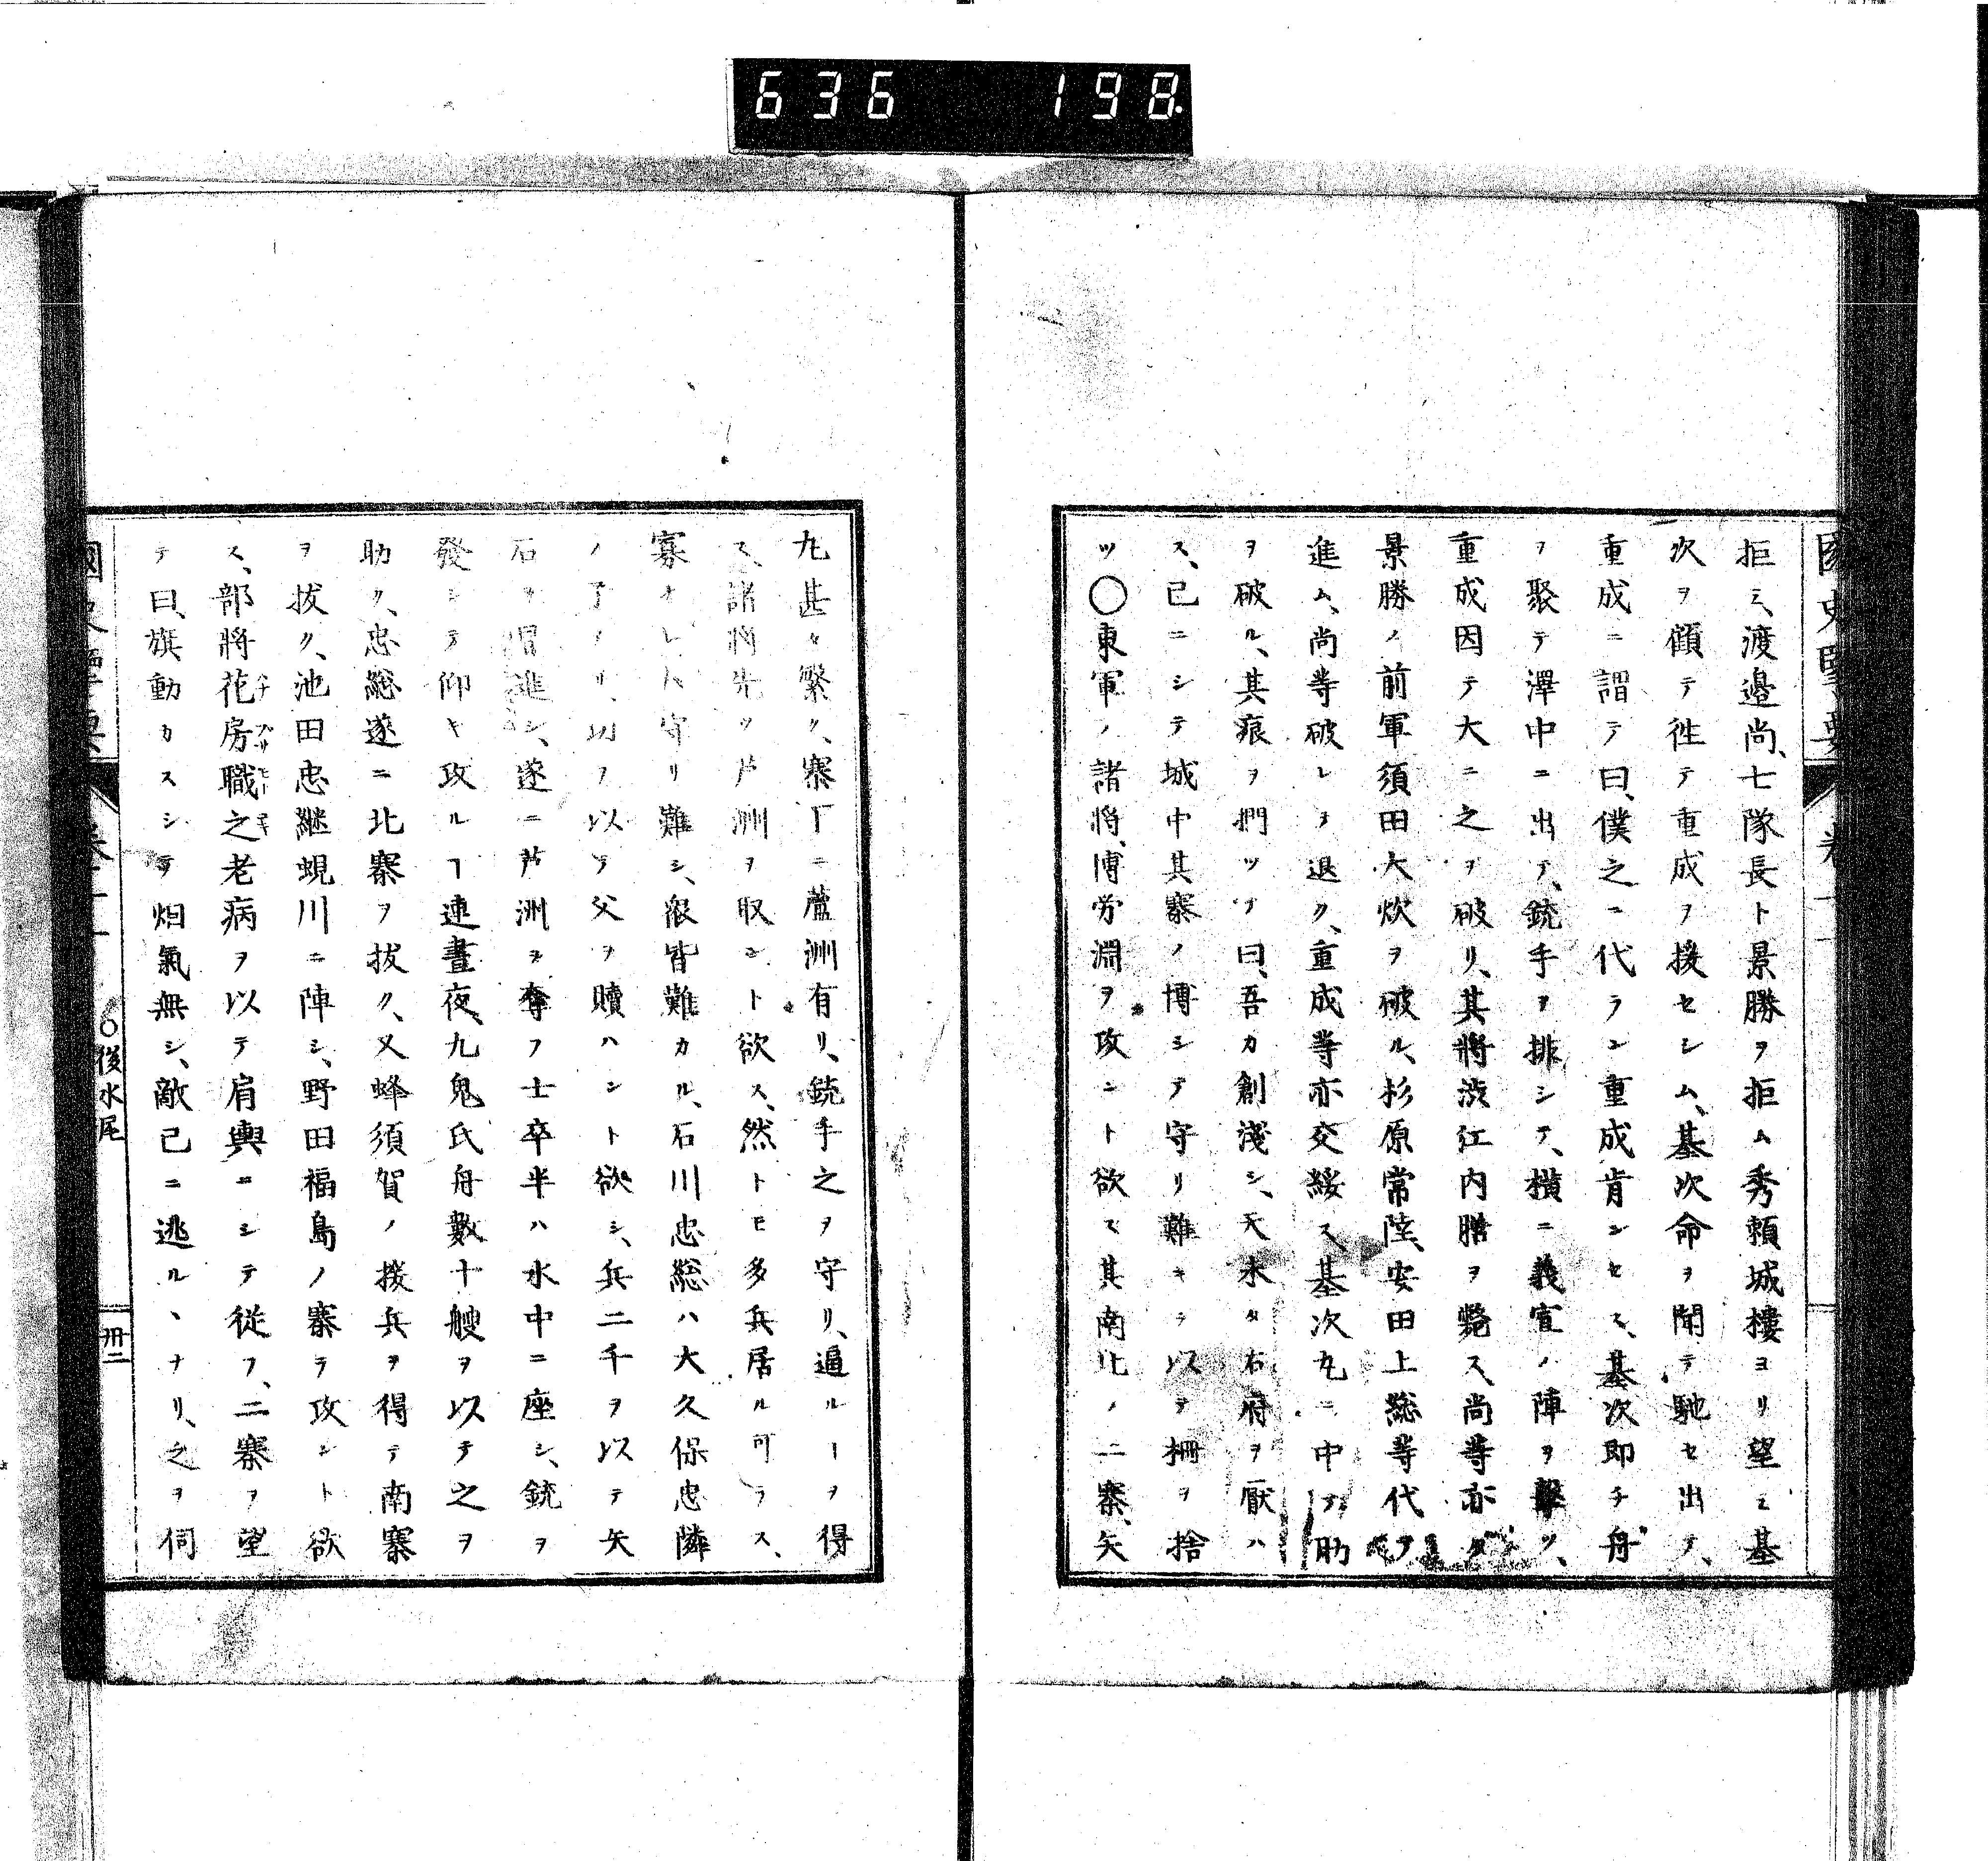 636 198.
國史擥要 卷十一
拒ミ、渡邉尚、七隊長ト景勝ヲ拒ム秀頼城樓ヨリ望ミ基
次ヲ顧テ徃テ重成ヲ援セシム、基次命ヲ聞テ馳セ出テ、
重成ニ謂テ曰、僕之ニ代ラン重成肯ンセス、基次即チ舟
ヲ聚テ澤中ニ出テ、銃手ヲ排シテ、横ニ義宣ノ陣ヲ擊ツ、
重成因テ大ニ之ヲ破リ、其將渋江内膳ヲ斃ス、尚等亦タ
景勝ノ前軍須田大炊ヲ破ル、杉原常陸、安田上総等代テ
進ム、尚等破レヲ退ク、重成等亦交綏ス、基次丸ニ中テ肋
ヲ破ル、其痕ヲ捫ツテ曰、吾カ創淺シ、天未タ右府ヲ厭ハ
ス、已ニシテ城中其寨ノ博シテ守リ難キヲ以テ柵ヲ捨
ツ〇東軍ノ諸将、博労淵ヲ攻ント欲ス其南北ノ二寨、矢
丸甚タ繁ク、寨下ニ蘆洲有リ、銃手之ヲ守リ、逼ルーヲ得
ス、諸將先ツ芦洲ヲ取ント欲ス、然トモ多兵居ル可ラス、
寡ナレハ守リ難シ、衆皆難カル、石川忠総ハ大久保忠隣
ノ子ナリ、功ヲ以テ父ヲ贖ハント欲シ、兵二千ヲ以テ矢
石ヲ冒進シ、遂ニ芦洲ヲ奪フ士卒半ハ水中ニ座シ、銃ヲ
發シテ仰キ攻ルヿ連晝夜、九鬼氏舟數十艘ヲ以テ之ヲ
助ク、忠総遂ニ北寨ヲ拔ク、又蜂須賀ノ援兵ヲ得テ南寨
ヲ拔ク、池田忠継蜆川ニ陣シ、野田福島ノ寨ヲ攻ント欲
ス、部將花房職之老病ヲ以テ肩輿ニシテ従フ、二寨ヲ望
テ曰、旗動カスシテ烟氣無シ、敵已ニ逃ルヽナリ、之ヲ伺
國史擥要 卷十一 〇後水尾 卅二